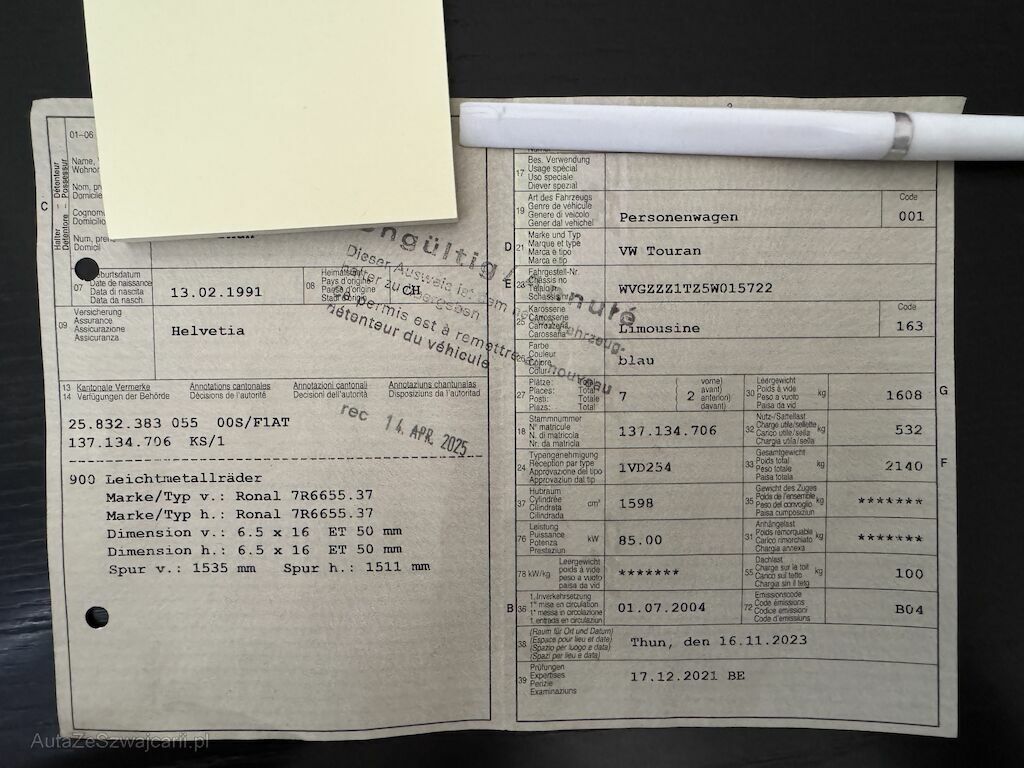 01–06
Halter – Détenteur
Detentore – Possessur
C
Name,
Wohnor
Nom, pr
Domicile
Cognom
Domicilio
Num, pren
Domicil
07
Geburtsdatum
Date de naissance
Data di nascita
Data da nasch.
13.02.1991
08
Heimatstaat
Pays d'origine
Paese d'origine
CH
09
Versicherung
Assurance
Assicurazione
Assicuranza
Helvetia
Ungültig / Annulé
Dieser Ausweis ist dem neuen Fahrzeug-
halter zu übergeben
Ce permis est à remettre au nouveau
détenteur du véhicule
rec 14. APR. 2025
13
14
Kantonale Vermerke
Verfügungen der Behörde
Annotations cantonales
Décisions de l'autorité
Annotazioni cantonali
Decisioni dell'autorità
Annotaziuns chantunalas
Disposiziuns da l'autoritad
25.832.383 055 00S/F1AT
137.134.706 KS/1
900 Leichtmetallräder
Marke/Typ v.: Ronal 7R6655.37
Marke/Typ h.: Ronal 7R6655.37
Dimension v.: 6.5 x 16 ET 50 mm
Dimension h.: 6.5 x 16 ET 50 mm
Spur v.: 1535 mm Spur h.: 1511 mm
17
Bes. Verwendung
Usage spécial
Uso speciale
Diever spezial
19
Art des Fahrzeugs
Genre de véhicule
Genere di veicolo
Gener dal vehichel
Personenwagen
Code
001
D 21
Marke und Typ
Marque et type
Marca e tipo
Marca e tip
VW Touran
E 23
Fahrgestell-Nr.
Châssis no
Telaio n.
Schassis nr.
WVGZZZ1TZ5W015722
25
Karosserie
Carrosserie
Carrozzeria
Carossaria
Limousine
Code
163
26
Farbe
Couleur
Colore
Colur
blau
27
Plätze: Total
Places: Total
Posti: Totale
Plazs: Total
7
( 2
vorne)
avant)
anteriori)
davant)
30
Leergewicht
Poids à vide
Peso a vuoto
Paisa da vid
kg
1608
G
18
Stammnummer
N° matricule
N. di matricola
Nr. da matricla
137.134.706
32
Nutz-/Sattellast
Charge utile/sellette
Carico utile/sella
Chargia utila/sella
kg
532
24
Typengenehmigung
Réception par type
Approvazione del tipo
Approvaziun dal tip
1VD254
33
Gesamtgewicht
Poids total
Peso totale
Paisa totala
kg
2140
F
37
Hubraum
Cylindrée
Cilindrata
Cilindrada
cm³
1598
35
Gewicht des Zuges
Poids de l'ensemble
Peso del convoglio
Paisa cumposiziun
kg
*******
76
Leistung
Puissance
Potenza
Prestaziun
kW
85.00
31
Anhängelast
Poids remorquable
Carico rimorchiato
Chargia annexa
kg
*******
78 kW/kg
Leergewicht
poids à vide
peso a vuoto
paisa da vid
*******
55
Dachlast
Charge sur le toit
Carico sul tetto
Chargia sin il tetg
kg
100
B 36
1. Inverkehrsetzung
1re mise en circulation
1a messa in circolazione
1. entrada en circulaziun
01.07.2004
72
Emissionscode
Code émissions
Codice emissioni
Code d'emissiuns
B04
38
(Raum für Ort und Datum)
(Espace pour lieu et date)
(Spazio per luogo e data)
(Spazi per lieu e data)
Thun, den 16.11.2023
39
Prüfungen
Expertises
Perizie
Examinaziuns
17.12.2021 BE
AutaZeSzwajcarii.pl